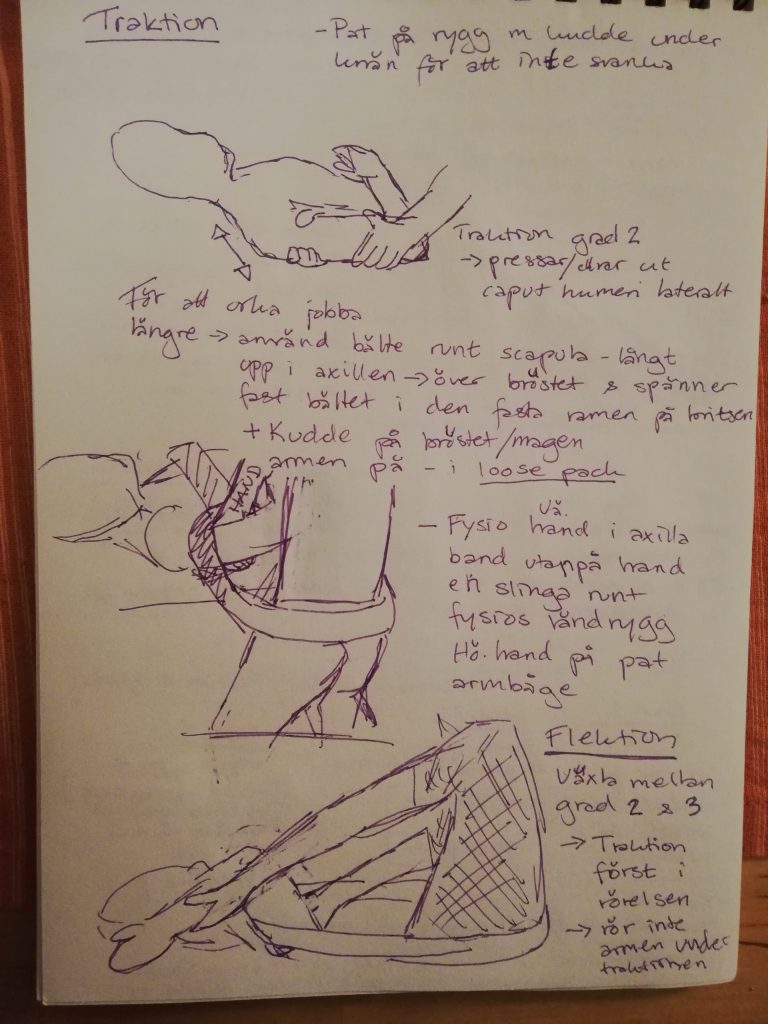 Traktion
- Pat på rygg m kudde under
knän för att inte svanka
Traktion grad 2
→ pressar/drar ut
caput humeri lateralt
För att orka jobba
längre → använd bälte runt scapula - långt
upp i axillen → över bröstet & spänner
fast bältet i den fasta ramen på britsen
+ Kudde på bröstet/magen
armen på - i loose pack
HAND
- Fysio vä. hand i axilla
band utanpå hand
en slinga runt
fysios ländrygg
Hö. hand på pat
armbåge
Flektion
Växla mellan
grad 2 & 3
→ Traktion
först i
rörelsen
→ rör inte
armen under
traktionen